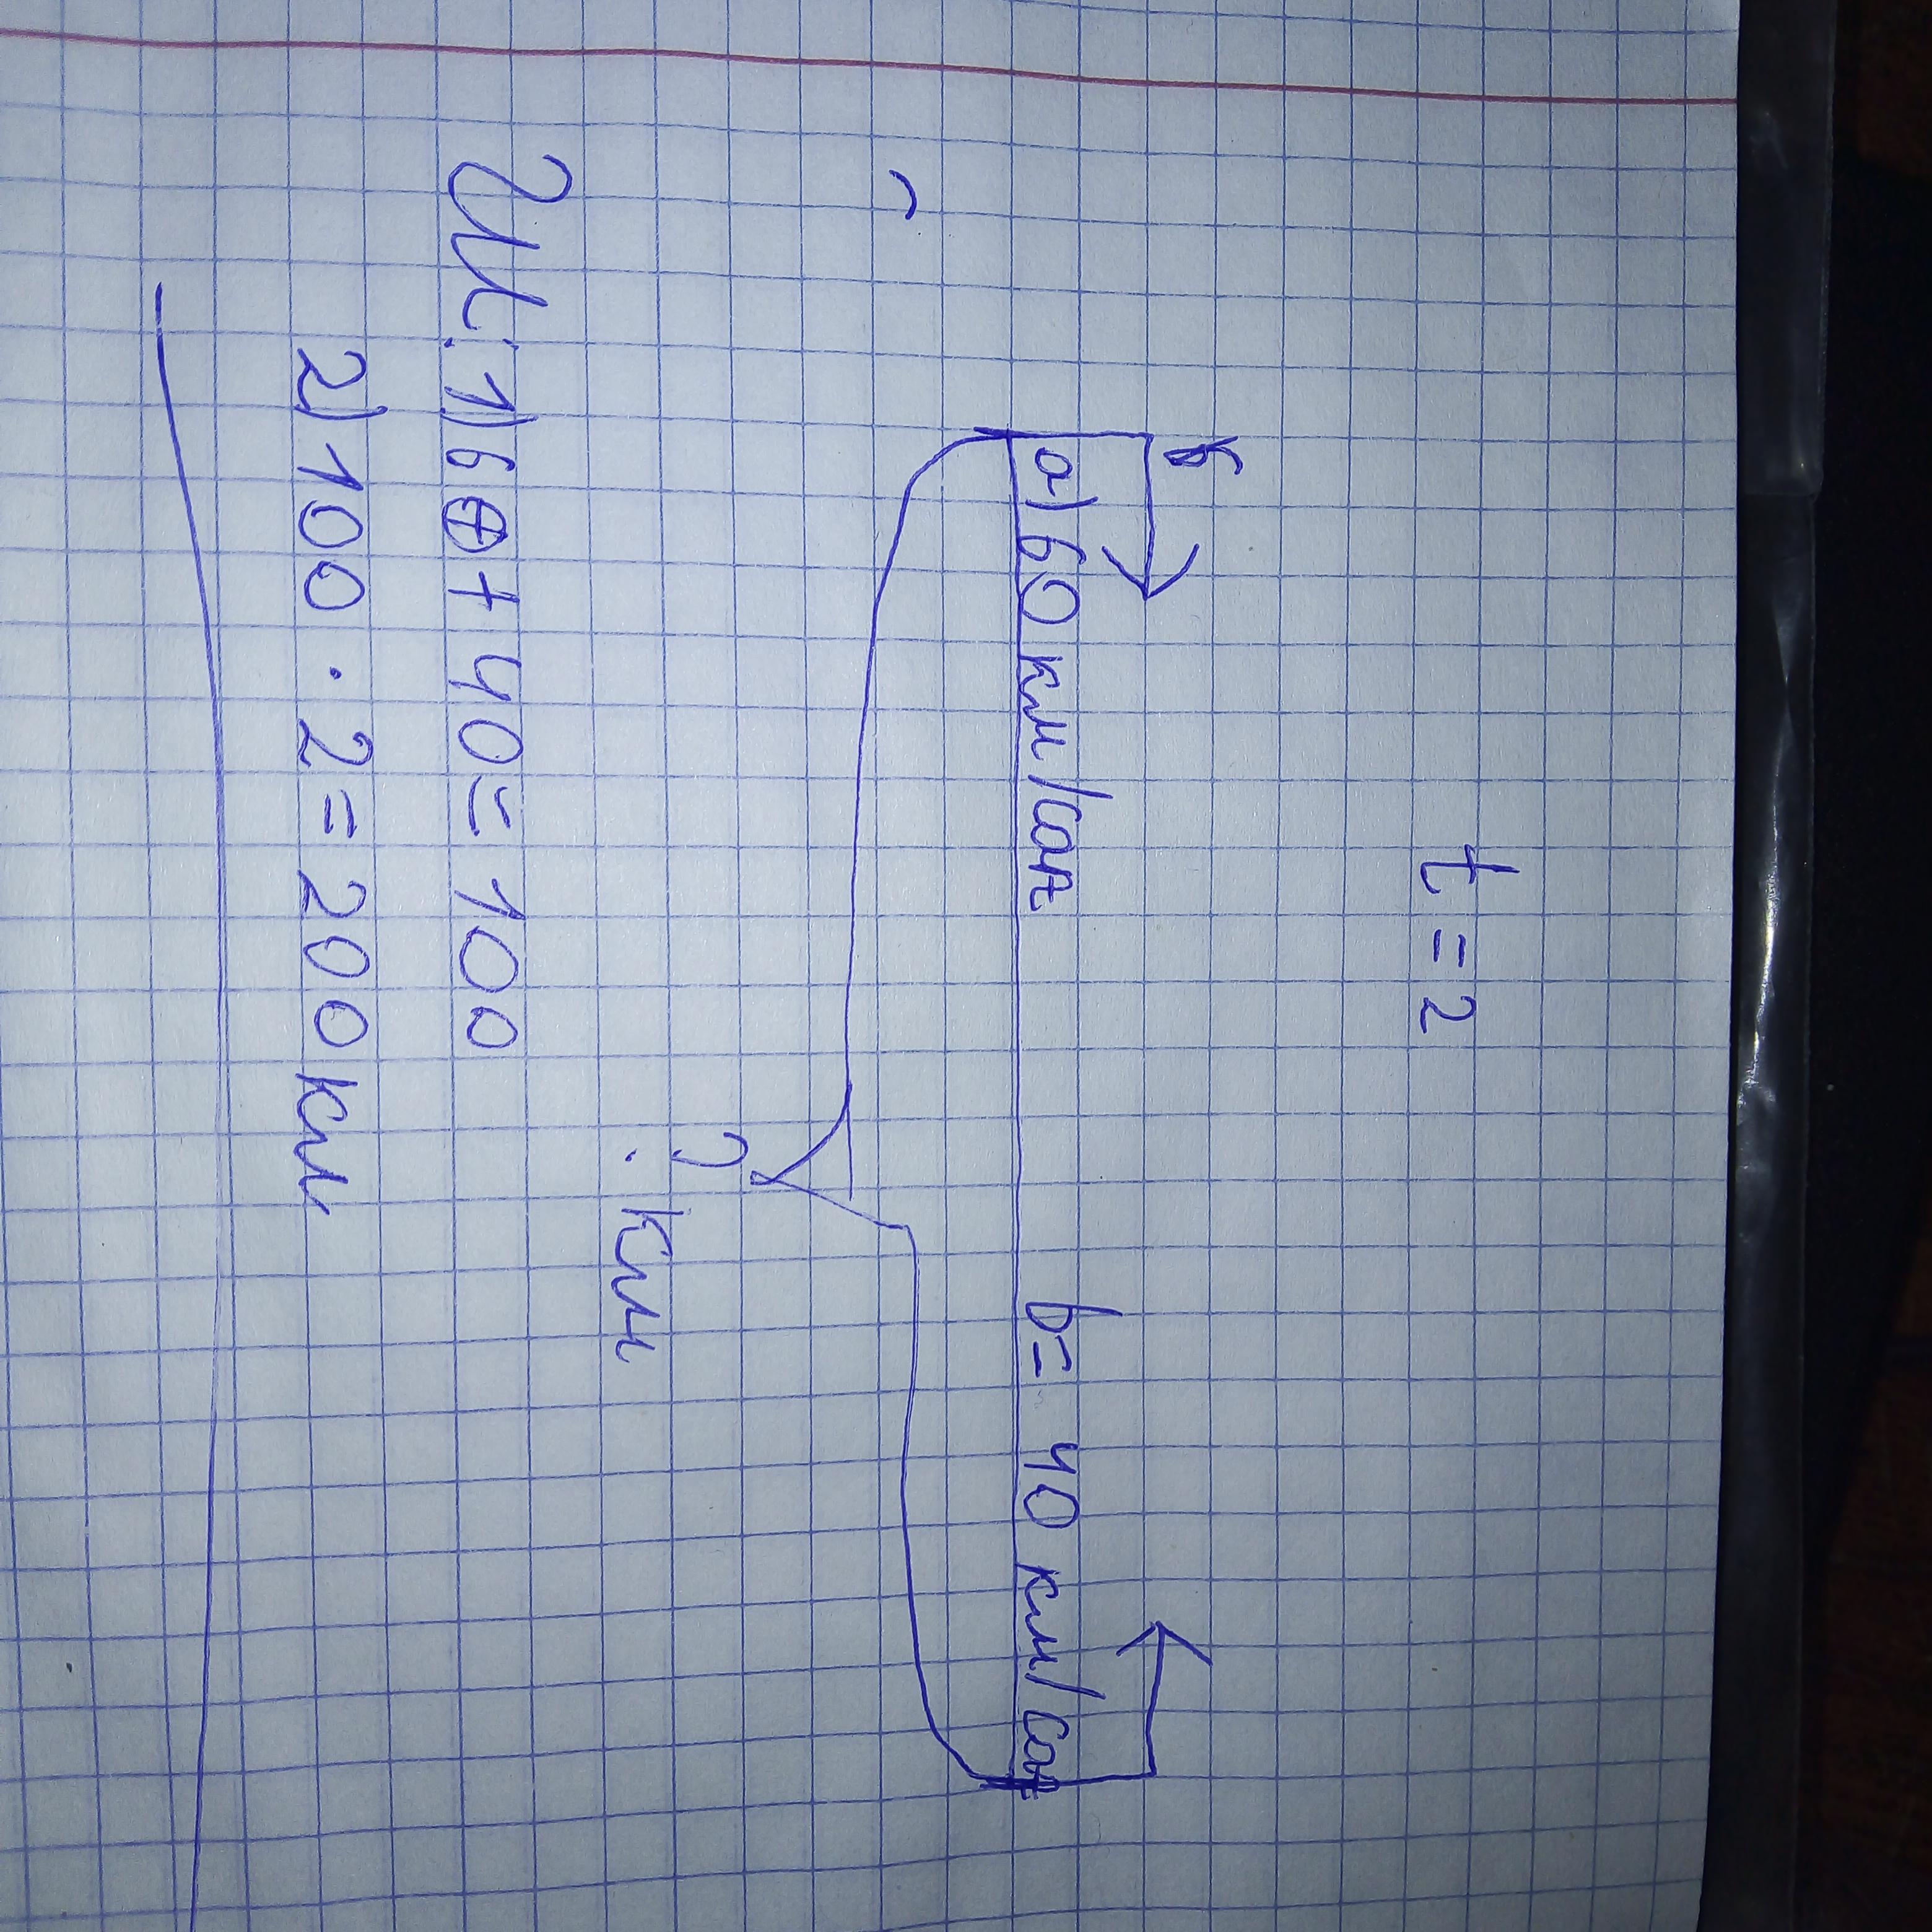 t = 2
a) 60 км/саг b= 40 км/саг
? км
Чиг: 1) 60 + 40 = 100
2) 100 · 2 = 200 км